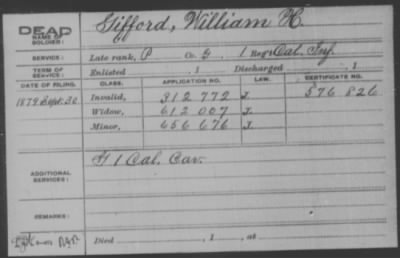 DEAD
NAME OF SOLDIER:
Gifford, William H.
SERVICE: Late rank, P Co. G, 1 Reg't Cal. Inf.
TERM OF SERVICE: Enlisted , 1 Discharged , 1
DATE OF FILING. CLASS. APPLICATION NO. LAW. CERTIFICATE NO.
1879 Sept. 30 Invalid, 312 772 J. 576 826
Widow, 612 007 J.
Minor, 656 676 J.
ADDITIONAL SERVICES: G 1 Cal. Cav.
REMARKS:
Died , 1 , at